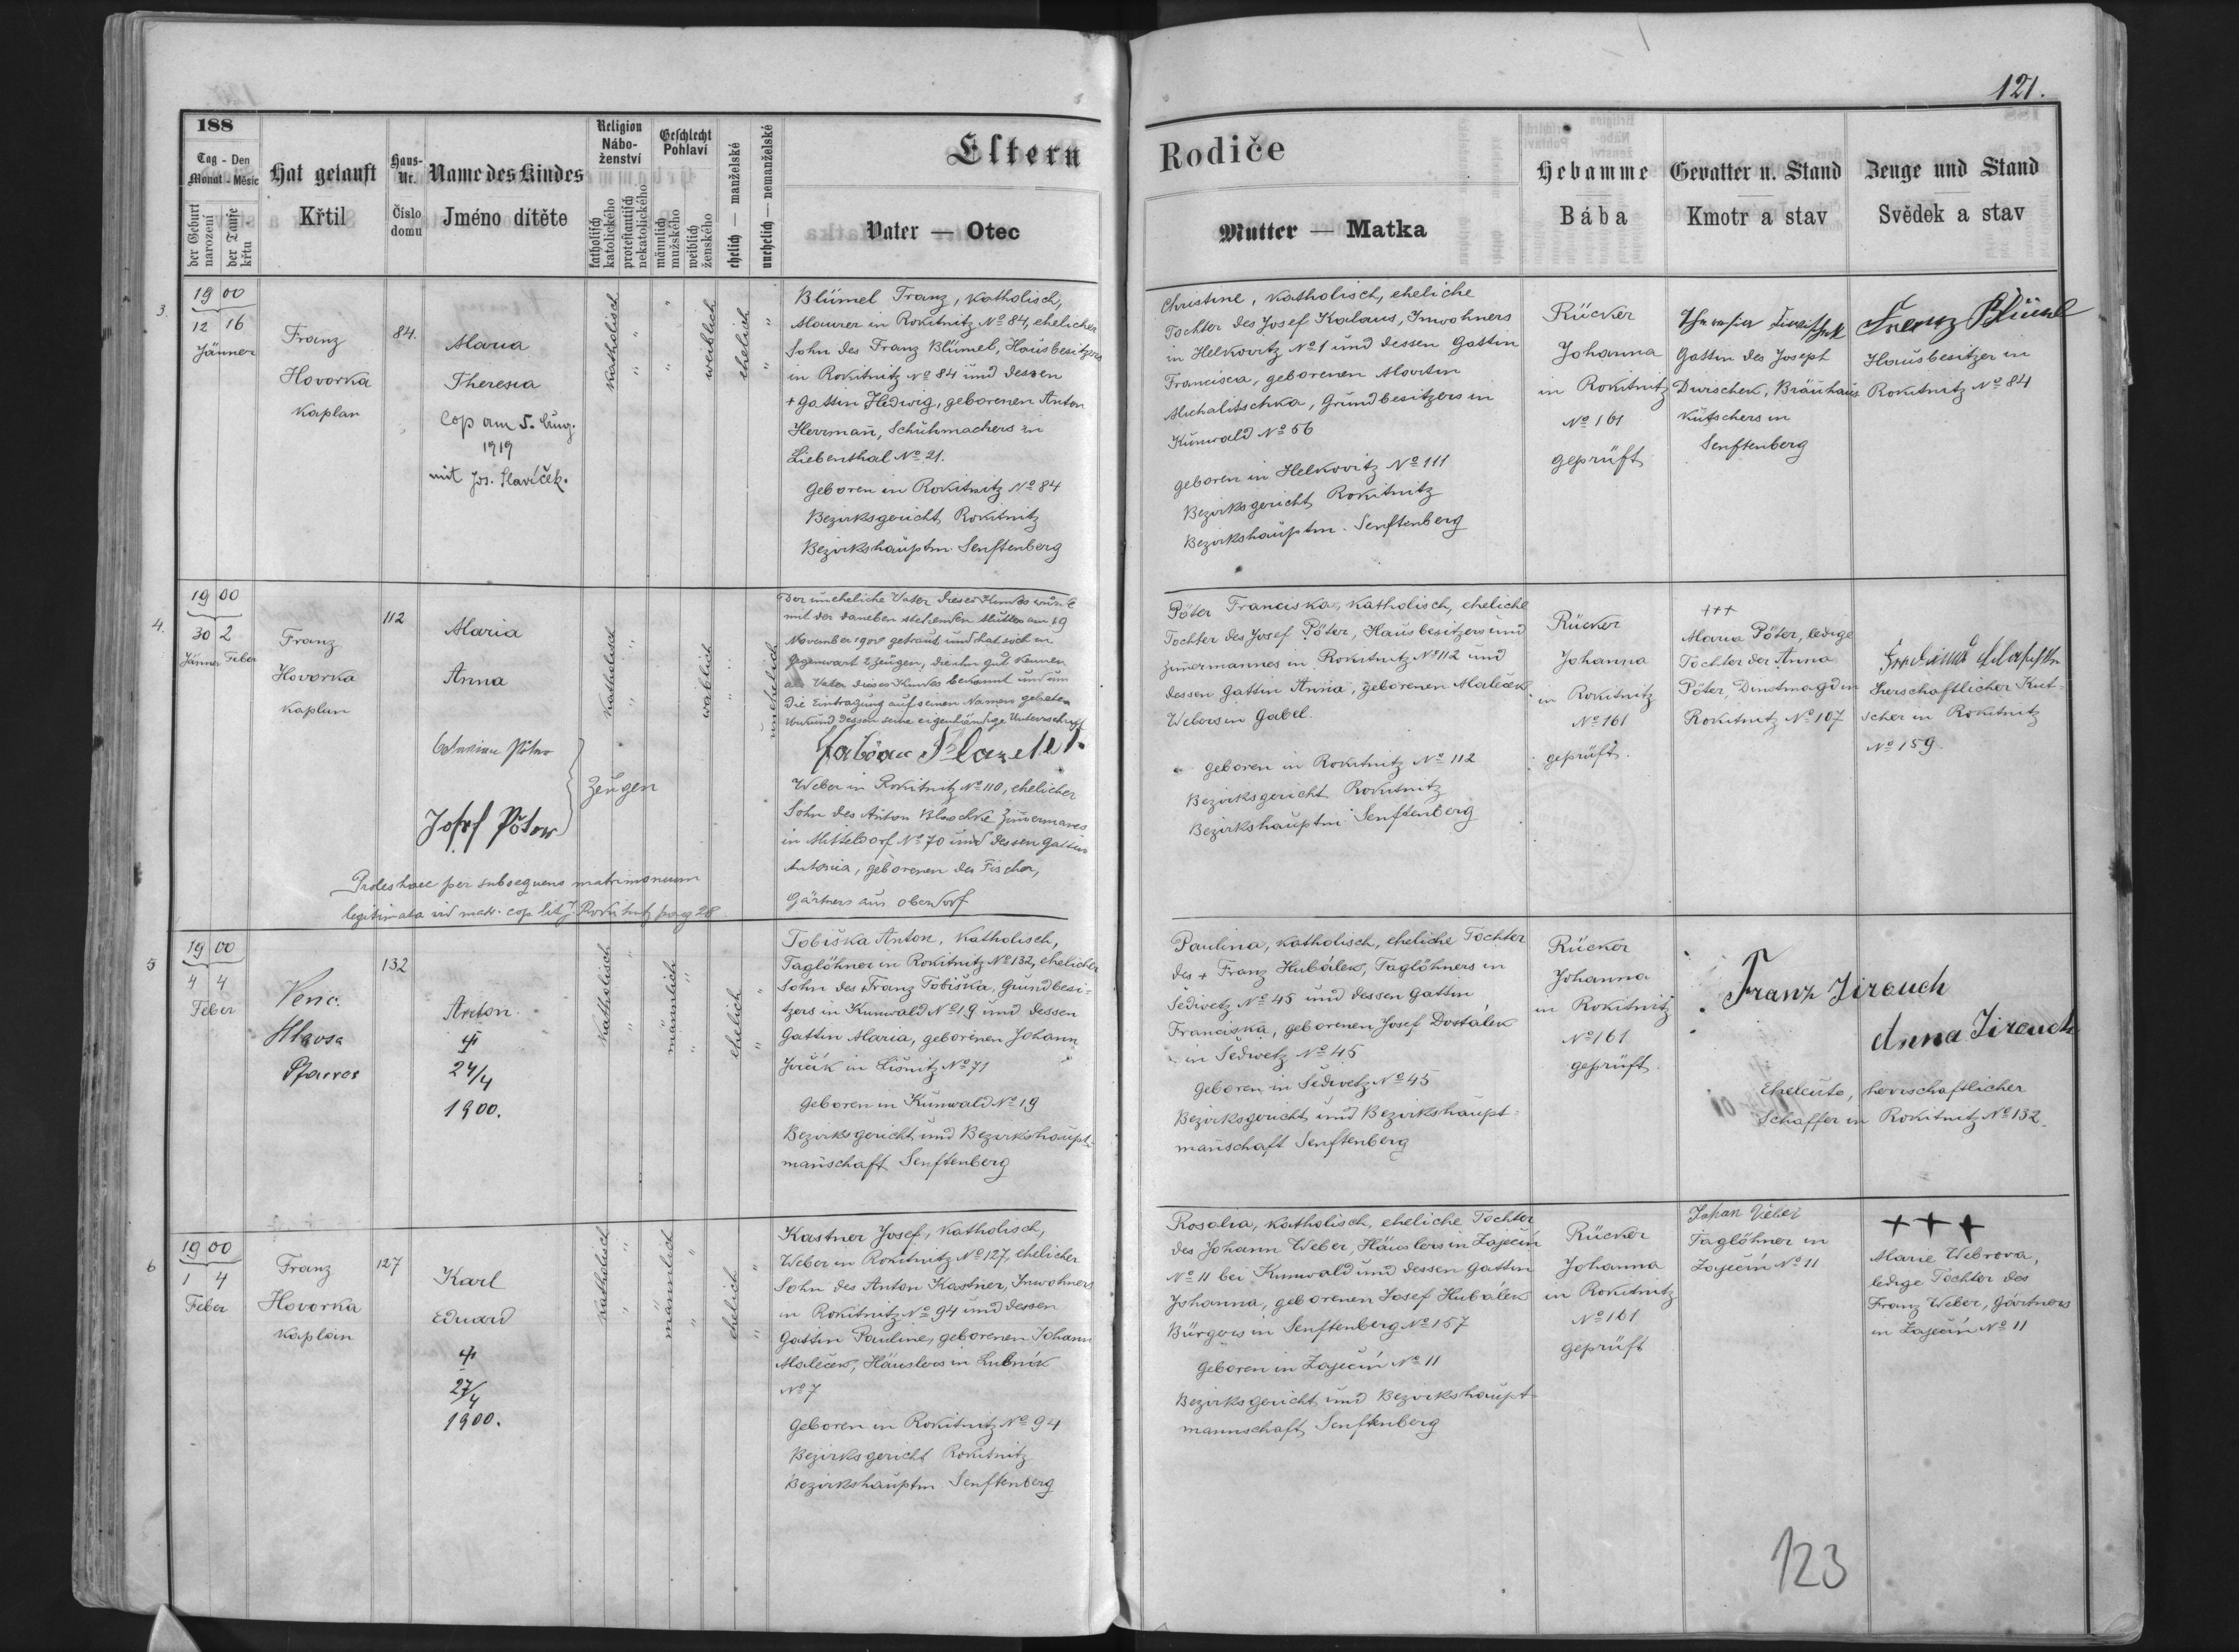 121.
188
Tag - Den
Monat - Měsíc
der Geburt
narození
der Taufe
křtu
Hat getauft
Křtil
Haus-Nr.
Číslo domu
Name des Kindes
Jméno dítěte
Religion
Náboženství
katholisch
katolického
protestantisch
nekatolického
Geschlecht
Pohlaví
männlich
mužského
weiblich
ženského
ehelich — manželské
unehelich — nemanželské
Eltern
Rodiče
Vater — Otec
Mutter — Matka
Hebamme
Bába
Gevatter u. Stand
Kmotr a stav
Zeuge und Stand
Svědek a stav
3.
19 00
12 16
Jänner
Franz
Hovorka
Kaplan
84.
Maria
Theresia
Cop am 5. Aug.
1919
mit Jos. Slavíček.
katholisch
weiblich
ehelich
Blümel Franz, katholisch,
Maurer in Rokitnitz No 84, ehelicher
Sohn des Franz Blümel, Hausbesitzers
in Rokitnitz No 84 und dessen
+ Gattin Hedwig, geborenen Anton
Herrman̄, Schuhmachers in
Liebenthal No 21.
Geboren in Rokitnitz No 84
Bezirksgericht Rokitnitz
Bezirkshauptm. Senftenberg
Christine, katholisch, eheliche
Tochter des Josef Kalaus, Inwohners
in Helkovitz No 1 und dessen Gattin
Francisca, geborenen Martin
Michalitschka, Grundbesitzers in
Kunwald No 56
geboren in Helkovitz No 111
Bezirksgericht Rokitnitz
Bezirkshauptm. Senftenberg
Rücker
Johanna
in Rokitnitz
No 161
geprüft
Gattin des Joseph
Dwischek, Bräuhaus
Kutschers in
Senftenberg
Franz Blümel
Hausbesitzer in
Rokitnitz No 84
4.
19 00
30 2
Jänner Feber
Franz
Hovorka
Kaplan
112
Maria
Anna
katholisch
weiblich
unehelich
Der uneheliche Vater dieses Kindes wurde
mit der daneben stehenden Mutter am 19
November 1900 getraut und hat sich in
Gegenwart 2 Zeugen, die ihn gut kennen
als Vater dieses Kindes bekannt und um
die Eintragung auf seinen Namen gebeten
Urkund dessen seine eigenhändige Unterschrift
Weber in Rokitnitz No 110, ehelicher
Sohn des Anton Blaschke Zim̄ermanes
in Mitteldorf No 70 und dessen Gattin
Antonia, geborenen des Fischer,
Gärtners aus Oberdorf
Pöter
Josef Pöter
Zeugen
Proles haec per subsequens matrimonium
legitimata vid matr. cop lit J. Rokitnitz pag 28
Pöter Franciska, katholisch, eheliche
Tochter des Josef Pöter, Hausbesitzers und
Zim̄ermannes in Rokitnitz No 112 und
dessen Gattin Anna, geborenen Maleček
Webers in Gabel.
geboren in Rokitnitz No 112
Bezirksgericht Rokitnitz
Bezirkshauptm. Senftenberg
Rücker
Johanna
in Rokitnitz
No 161
geprüft.
+++
Maria Pöter, ledige
Tochter der Anna
Pöter, Dinstmagd in
Rokitnitz No 107
herschaftlicher Kut-
scher in Rokitnitz
No 159.
5
19 00
4 4
Feber
Venc.
Hlavsa
Pfarrer
132
Anton.
24/4
1900.
katholisch
männlich
ehelich
Tobiška Anton, katholisch,
Taglöhner in Rokitnitz No 132, ehelicher
Sohn des Franz Tobiška, Grundbesi-
tzers in Kunwald No 19 und dessen
Gattin Maria, geborenen Johann
Jirčík in Lišnitz No 71
Geboren in Kunwald No 19
Bezirksgericht und Bezirkshaupt-
man̄schaft Senftenberg
Paulina, katholisch, eheliche Tochter
des + Franz Hubálek, Taglöhners in
Sedivetz No 45 und dessen Gattin
Franciska, geborenen Josef Dostalek
in Sedivetz No 45
Geboren in Sedivetz No 45
Bezirksgericht und Bezirkshaupt-
man̄schaft Senftenberg
Rücker
Johanna
in Rokitnitz
No 161
geprüft.
Franz Jirouch
Anna Jirouch
Eheleute, herrschaftlicher
Schaffer in Rokitnitz No 132.
6
19 00
1 4
Feber
Franz
Hovorka
Kaplan
127
Karl
Eduard
27/4
1900.
katholisch
männlich
ehelich
Kastner Josef, katholisch,
Weber in Rokitnitz No 127, ehelicher
Sohn des Anton Kastner, Inwohners
in Rokitnitz No 94 und dessen
Gattin Pauline, geborenen Johann
Maleček, Häuslers in Lubník
No 7
Geboren in Rokitnitz No 94
Bezirksgericht Rokitnitz
Bezirkshauptm Senftenberg
Rosalia, katholisch, eheliche Tochter
des Johann Weber, Häuslers in Zaječin
No 11 bei Kunwald und dessen Gattin
Johanna, geborenen Josef Hubálek
Bürgers in Senftenberg No 157
Geboren in Zaječin No 11
Bezirksgericht und Bezirkshaupt-
mannschaft Senftenberg
Rücker
Johanna
in Rokitnitz
No 161
geprüft
Taglöhner in
Zaječin No 11
+++
Marie Webrova,
ledige Tochter des
Franz Weber, Gärtners
in Zaječin No 11
123